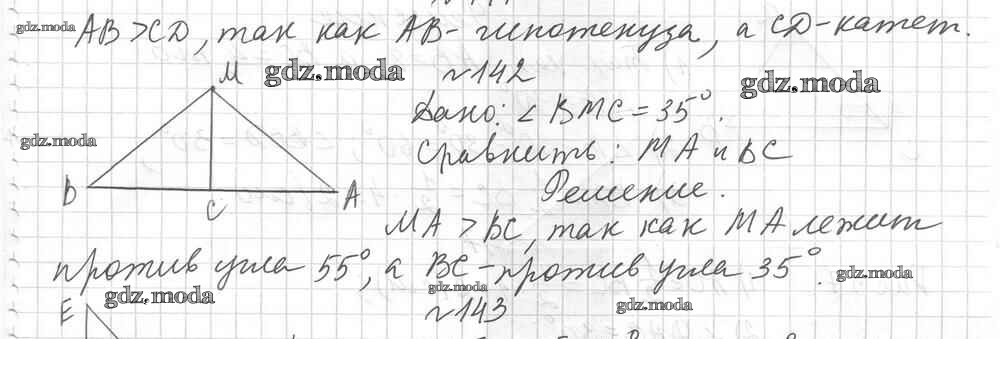 gdz.moda AB>CD, так как AB- гипотенуза, а CD-катет.
M gdz.moda №142 gdz.moda
Дано: ∠ BMC = 35°.
gdz.moda Сравнить: MA и BC
B C A Решение.
MA > BC, так как MA лежит
против угла 55°, а BC-против угла 35°. gdz.moda
E gdz.moda gdz.moda №143 gdz.moda